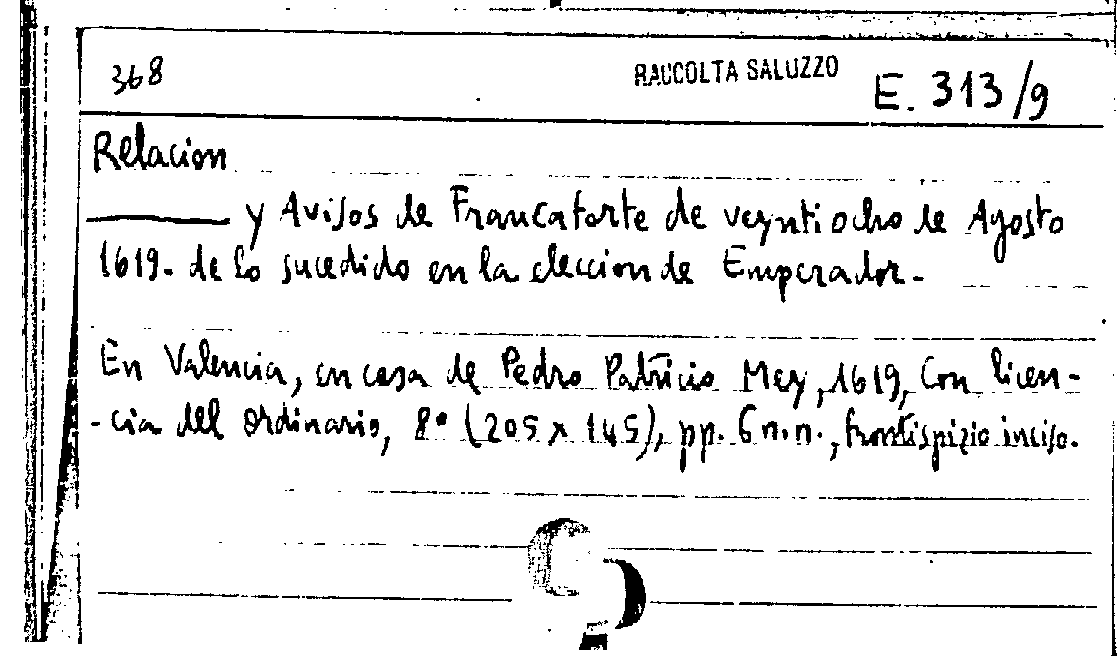 368 RACCOLTA SALUZZO E. 313/9
Relacion
——— y Avisos de Francaforte de veyntiocho de Agosto
1619. de lo sucedido en la eleccion de Emperador.
En Valencia, en casa de Pedro Patricio Mey, 1619, Con licen-
-cia del ordinario, 8° (205 x 145), pp. 6 n.n., frontispizio inciso.